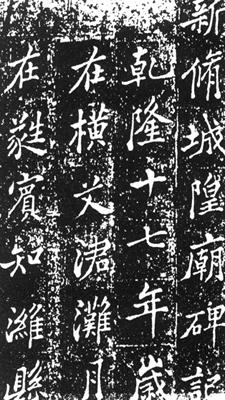 新脩城隍廟碑記
乾隆十七年歲
在横文涒灘月
在蕤賓知濰縣